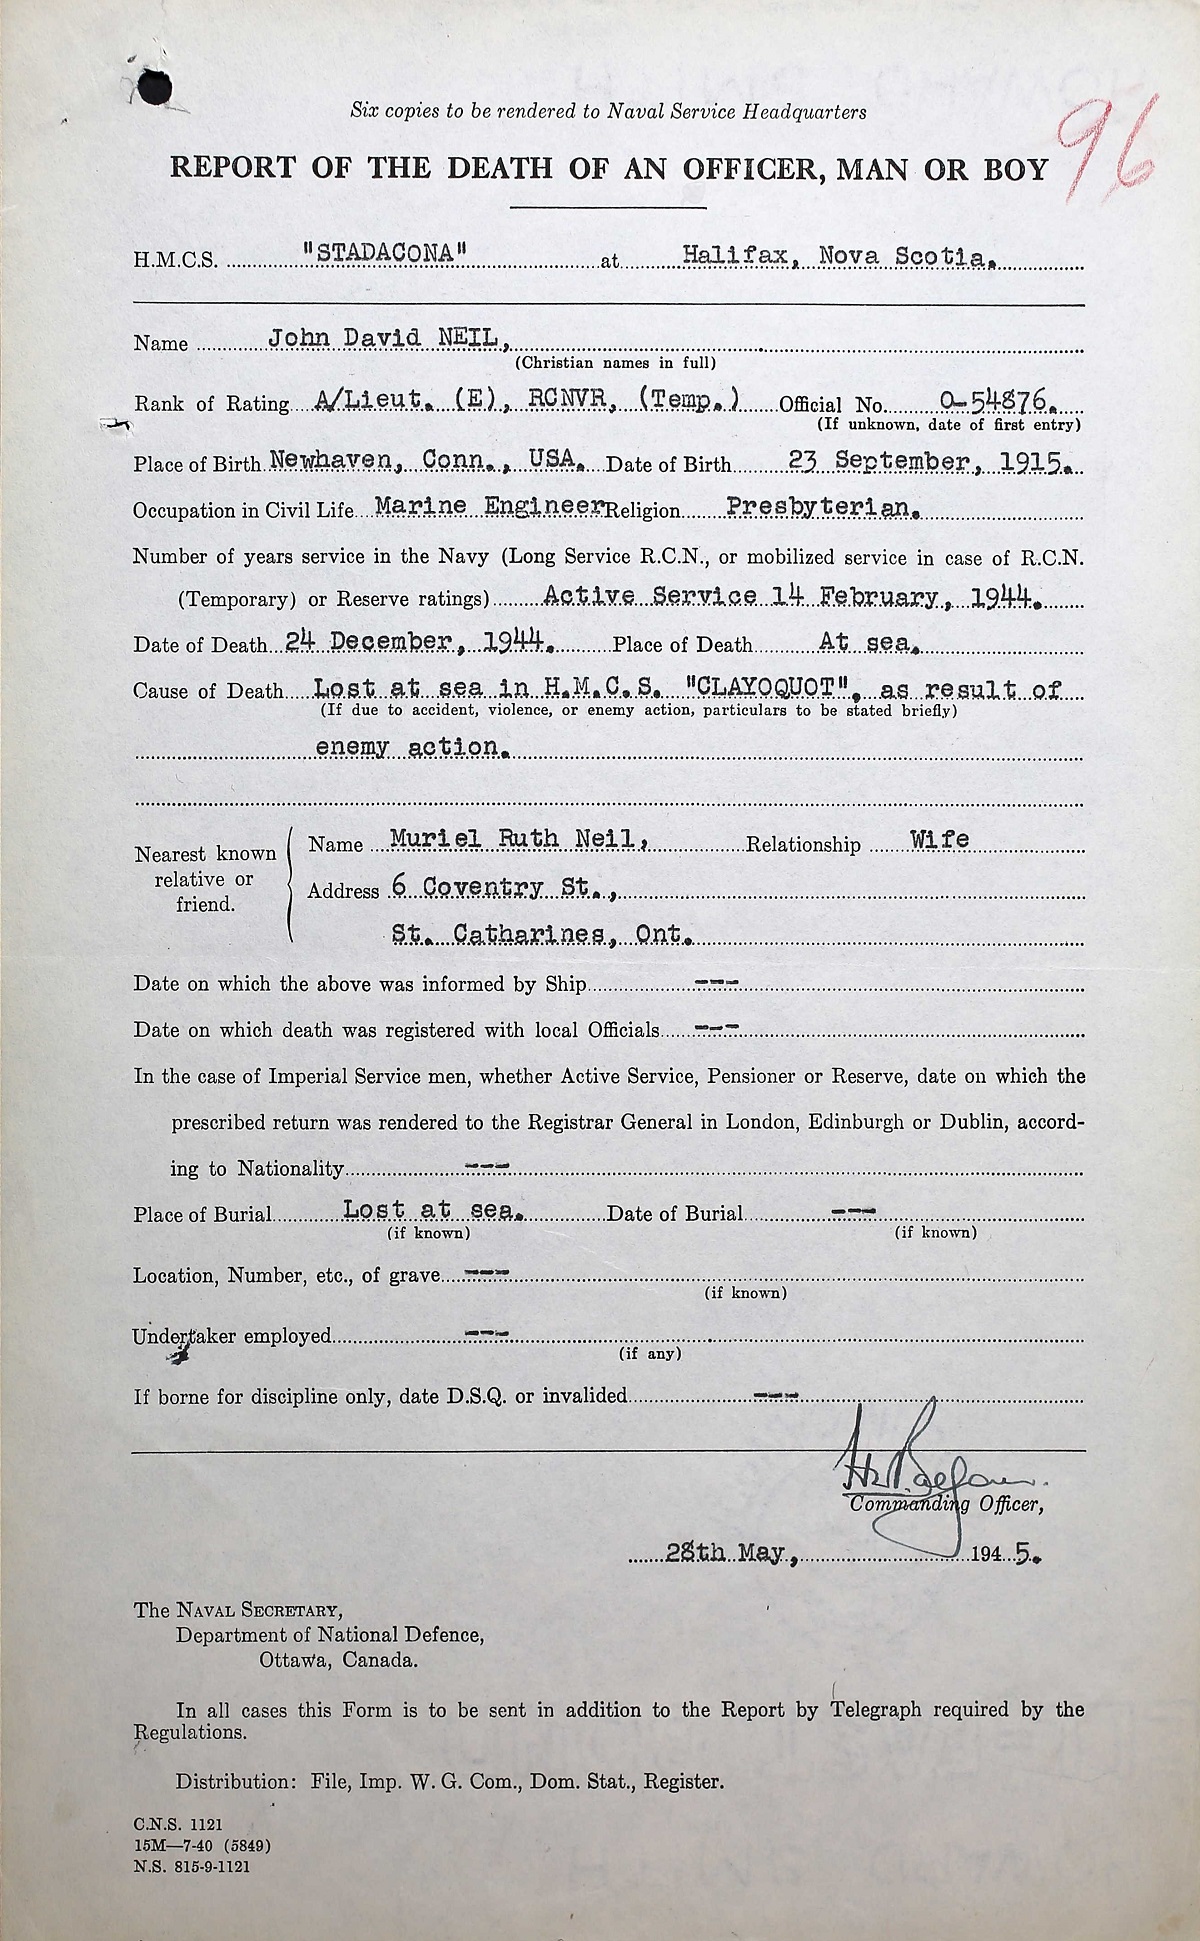 Six copies to be rendered to Naval Service Headquarters
96
REPORT OF THE DEATH OF AN OFFICER, MAN OR BOY
H.M.C.S. "STADACONA" at Halifax, Nova Scotia.
Name John David NEIL,
(Christian names in full)
Rank of Rating A/Lieut. (E), RCNVR, (Temp.) Official No. O-54876.
(If unknown, date of first entry)
Place of Birth Newhaven, Conn., USA. Date of Birth 23 September, 1915.
Occupation in Civil Life Marine Engineer Religion Presbyterian.
Number of years service in the Navy (Long Service R.C.N., or mobilized service in case of R.C.N.
(Temporary) or Reserve ratings) Active Service 14 February, 1944.
Date of Death 24 December, 1944. Place of Death At sea.
Cause of Death Lost at sea in H.M.C.S. "CLAYOQUOT", as result of
(If due to accident, violence, or enemy action, particulars to be stated briefly)
enemy action.
Nearest known relative or friend.
Name Muriel Ruth Neil, Relationship Wife
Address 6 Coventry St.,
St. Catharines, Ont.
Date on which the above was informed by Ship ---
Date on which death was registered with local Officials ---
In the case of Imperial Service men, whether Active Service, Pensioner or Reserve, date on which the
prescribed return was rendered to the Registrar General in London, Edinburgh or Dublin, accord-
ing to Nationality ---
Place of Burial Lost at sea. Date of Burial ---
(if known) (if known)
Location, Number, etc., of grave ---
(if known)
Undertaker employed ---
(if any)
If borne for discipline only, date D.S.Q. or invalided ---
Commanding Officer,
28th May, 1945.
The NAVAL SECRETARY,
Department of National Defence,
Ottawa, Canada.
In all cases this Form is to be sent in addition to the Report by Telegraph required by the
Regulations.
Distribution: File, Imp. W. G. Com., Dom. Stat., Register.
C.N.S. 1121
15M—7-40 (5849)
N.S. 815-9-1121